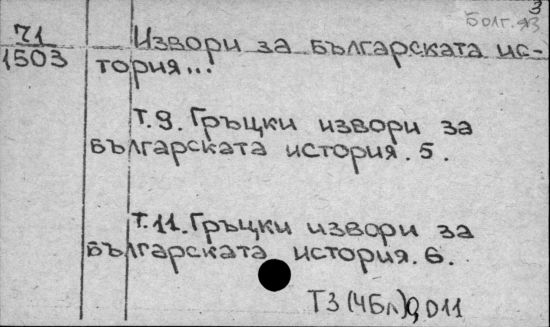 3
Болг. яз
71
1503
Извори за българската ис-
тория...
Т.9. Гръцки извори за
българската история. 5.
Т.11. Гръцки извори за
българската история. 6.
Т3(4Бл)0,011